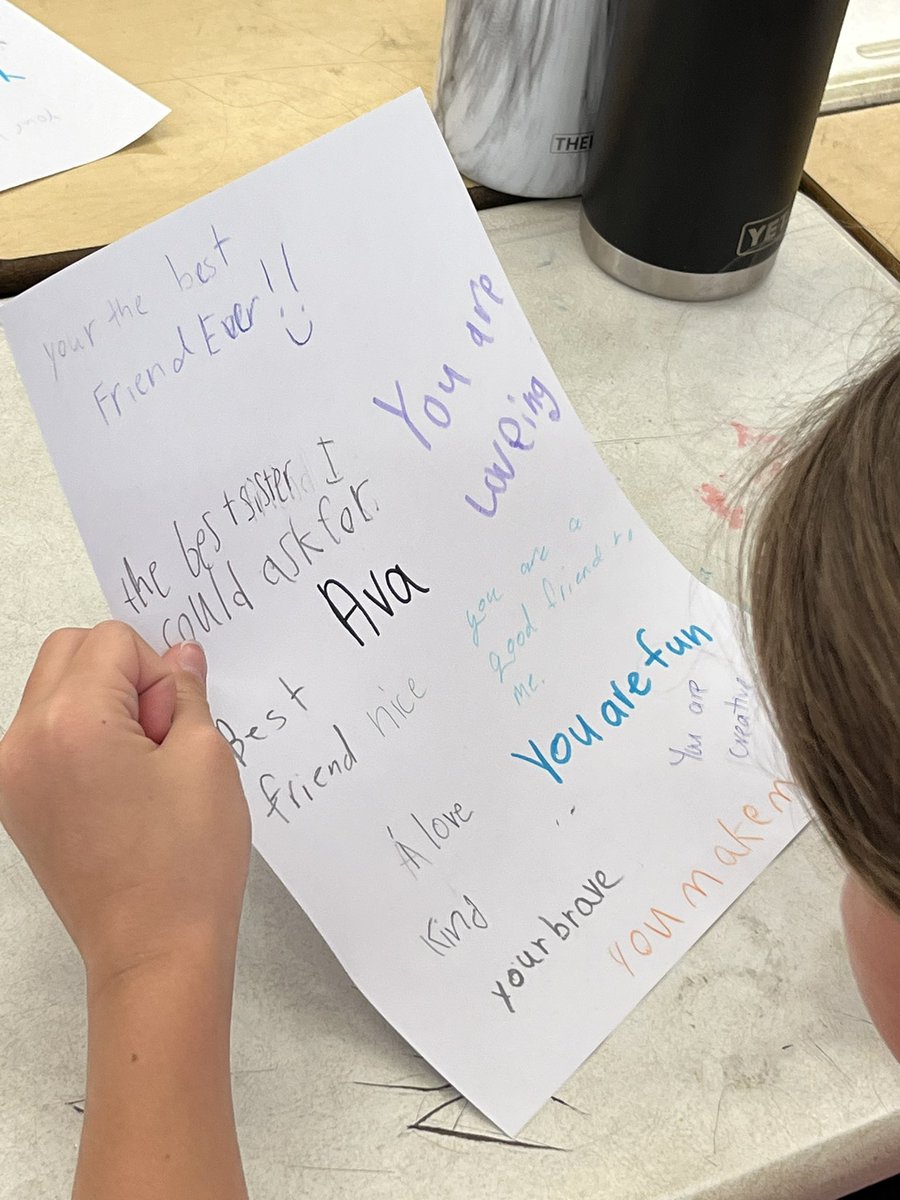 your the best
Friend Ever!!
You are
Loveing
the best sister I
could ask for.
Ava
you are a
good friend to
me.
Best
friend nice
You are fun
You are
creative
A love
Kind
your brave
you make
THE
YETI